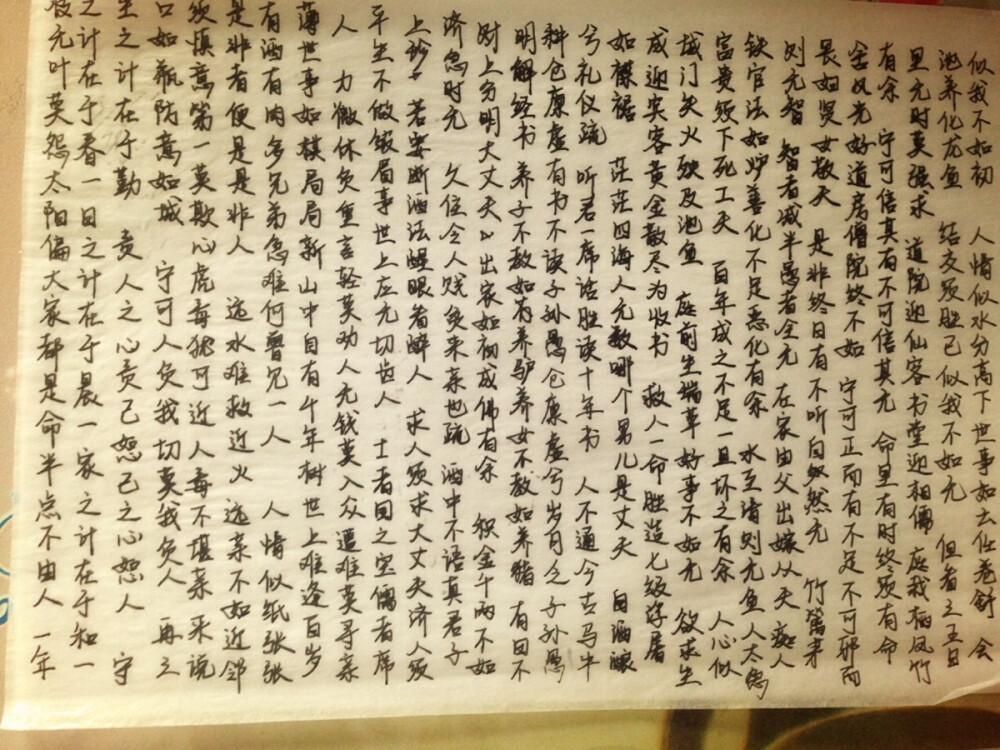 似我不如初 人情似水分高下世事如云卷舒 会
池养化龙鱼 结交须胜己似我不如无 但看三五日
里无时莫强求 道院迎仙客书堂迎相儒 庭栽栖凤竹
有余 宁可信其有不可信其无 命里有时终须有命
金风光好道房僧院终不如 宁可正而有不足不可邪而
畏妇贤女敬夫 是非终日有不听自然无 竹篱茅
则无智 智者减半愚者全无 在家由父出嫁从夫 痴人
铁官法如炉善化不足恶化有余 水至清则无鱼人太急
富贵须下死工夫 百年成之不足一旦坏之有余 人心似
城门失火殃及池鱼 庭前生瑞草好事不如无 欲求生
成迎宾客黄金散尽为收书 救人一命胜造七级浮屠
如襟裾 茫茫四海人无数哪个男儿是丈夫 自酒酿
兮礼仪疏 听君一席话胜读十年书 人不通今古马牛
料仓廪虚有书不读子孙愚仓廪虚兮岁月乏子孙愚
明解经书 养子不教如养驴养女不教如养猪 有田不
财上分明大丈夫 出家如初成佛有余 积金千两不如
济急时无 久住令人贱频来亲也疏 酒中不语真君子
上珍 若要断酒法醒眼看醉人 求人须求大丈夫济人须
平生不做皱眉事世上应无切齿人 士者国之宝儒者席
人 力微休负重言轻莫劝人无钱莫入众 遭难莫寻亲
薄世事如棋局局新山中自有千年树世上难逢百岁
有酒有肉多兄弟急难何曾见一人 人情似纸张张
是非者便是是非人 远水难救近火远亲不如近邻
须慎意第一莫欺心虎毒犹可近人毒不堪亲 来说
口如瓶防意如城 宁可人负我切莫我负人 再三
生之计在于勤 责人之心责己恕己之心恕人 守
之计在于春一日之计在于晨一家之计在于和一
枝无叶莫怨太阳偏大家都是命半点不由人 一年